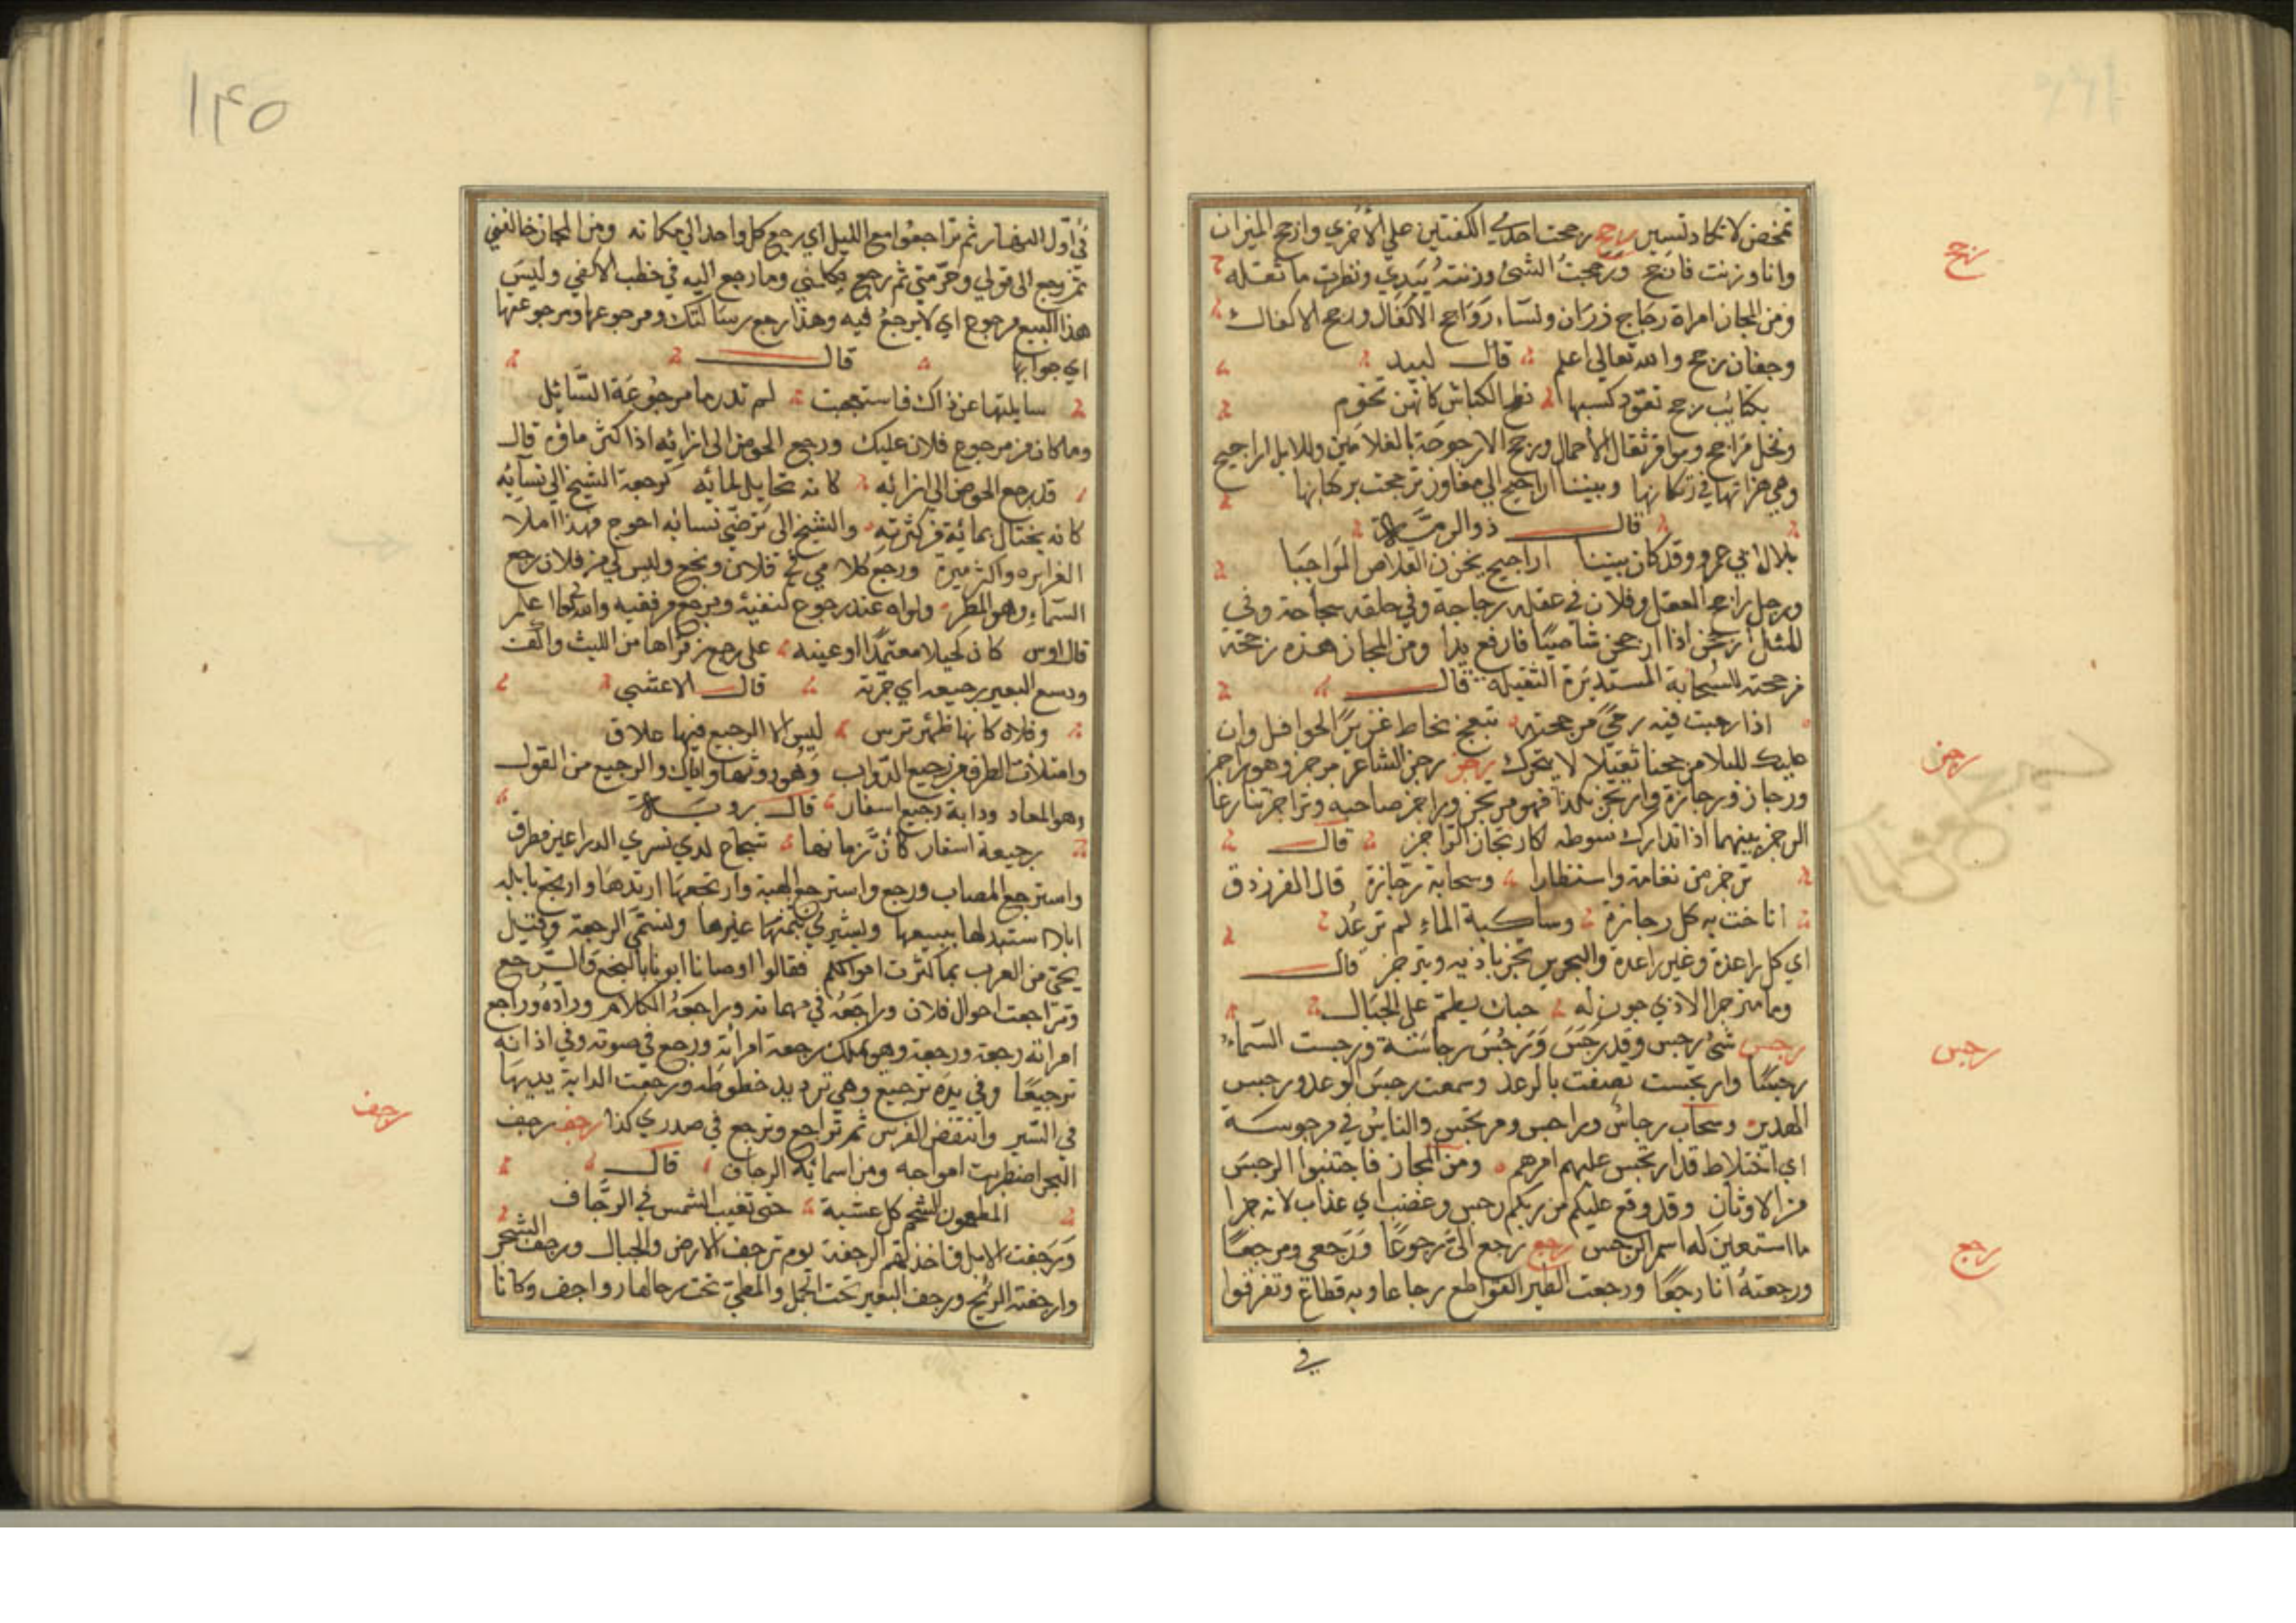 تمخض لا تكاد تسير رجح رجحت احدي الكفتين علي الأخري وارجح الميزان
واناوزنت فارجح ورجحت الشئ وزنته بيدي ونظرت ما ثقله
ومن المجاز امراة رجاح رزان ونساء رواجح الأكفال ورجح الاكفال
وجفان رجح والله تعالي اعلم قال لبيد
بكتائب رجح تعود كبشها نطح الكباش كانهن نجوم
ونخل مراجح ومواقر ثقال الأحمال ورجح الارجوحة بالغلامين وللابل اراجيح
وهي هزاتها في رتكانها وبيننا اراجيح الي مفاوز ترجحت بركبانها
قال ذو الرمة
بلال ابي عمرو وقد كان بيننا اراجيح يحزن القلاص النواجيا
ورجل راجح العقل وفلان في عقله رجاحة وفي خلقه سجاحة وفي
المثل ارجحن اذا ارجحن شاصيا فارفع يدا ومن المجاز هذه رحى
مرجحنة للسحابة المستديرة الثقيلة قال
اذا رجبت فيه رحي مرجحنة تبعج نجاط غزير الحوافل وان
عليك لليلا مرجحنا ثقيلا لا يتحرك رجز رجز الشاعر مرجز وهو راجز
ورجاز ورجازة وارتجز بكذا فهو مرتجز وراجز صاحبه وتراجز تنازعا
الرجز بينهما اذا تدارك سوطه كارتجاز الراجز قال
ترجز من تهامة واستطارا وسحابة رجازة قال الفرزدق
اناخت به كل رجازة وساكبة الماء لم ترعد
اي كل راعدة وغير راعدة والبحر يرتجز باذيه ويترجز قال
وما مترجز الاذي جون له حبك يطم علي الجبال
رجس شئ رجس وقد رجس ورجس رجاسة ورجست السماء
رجسا وارتجست قصفت بالرعد وسمعت رجس الرعد ورجس
الهدير وسحاب رجاس وراجس ومرتجس والناس في مرجوسة
اي اختلاط قد ارتجس عليهم امرهم ومن المجاز فاجتنبوا الرجس
من الاوثان وقد وقع عليكم من ربكم رجس وغضب اي عذاب لانه جزا
ما استعير له اسم الرجس رجع رجع الي رجوعا ورجعي ومرجعا
ورجعته انا رجعا ورجعت الطير القواطع رجاعا وبه قطاع وتفرقوا
في
رجح
رجز
رجس
رجع
١٤٥
في اول النهار ثم تراجعوا مع الليل اي رجع كل واحد الي مكانه ومن المجاز خالفني
ثم رجع الي قولي وصرمني ثم رجع يكلمني وما رجع اليه في خطب الا كفي وليس
هذا البيع مرجوع اي لا يرجع فيه وهذا رجع رسالتك ومرجوعها ومرجوعتها
اي جوابها قال
سايلتها عن ذاك فاستعجمت لم تدر ما مرجوعة السائل
وما كان من مرجوع فلان عليك ورجع الحوض الي ازائه اذا كثر ماؤه قال
قد رجع الحوض الي ازائه كانه تخايل لمائه كرجعة الشيخ الي نسائه
كانه يختال بمائه من كثرته والشيخ الي ترضي نسائه احوج فهذا املأ
السماء وهو المطر
قال اوس
ووسع البعير برجيعه اي جرته قال الاعشي
وفلاة كانها ظهر ترس ليس الا الرجيع فيها علاق
وامتلات الطرق من رجيع الدواب وهو روثها واياك والرجيع من القول
وهو المعاد ودابة رجيع اسفار قال ذو الرمة
رجيعة اسفار كأن زمامها شجاع لدي يسري الذراعين مطرق
واسترجع المصاب ورجع واسترجع الهبة وارتجعها ارتدها وارتجع بابله
ابلا استبدلها يبيعها ويشتري بثمنها غيرها وتسمي الرجعة وقيل
لحي من العرب بما كثرت اموالكم فقالوا اوصانا ابونا بالنجع والرجع
وتراجعت احوال فلان وراجعه في مهماته وراجعه الكلام وراده وراجع
امراته رجعة ورجعة وهو يملك رجعة امراته ورجع في صوته وفي اذانه
ترجيعا وفي يده ترجيع وهي ترديد خطوطه ورجعت الدابة يديها
في السير وانتقض الفرس ثم تراجع وترجع في صدري كذا رجف رجف
البحر اضطربت امواجه ومن اسمائه الرجاف قال
المطعمون الشحم كل عشية حتي تغيب الشمس في الرجاف
ورجفت الابل فاخذتهم الرجفة يوم ترجف الارض والجبال ورجف الشجر
وارجفته الريح ورجف البعير تحت الحمل والمطي تحت رحالها رواجف وكانا
رجف